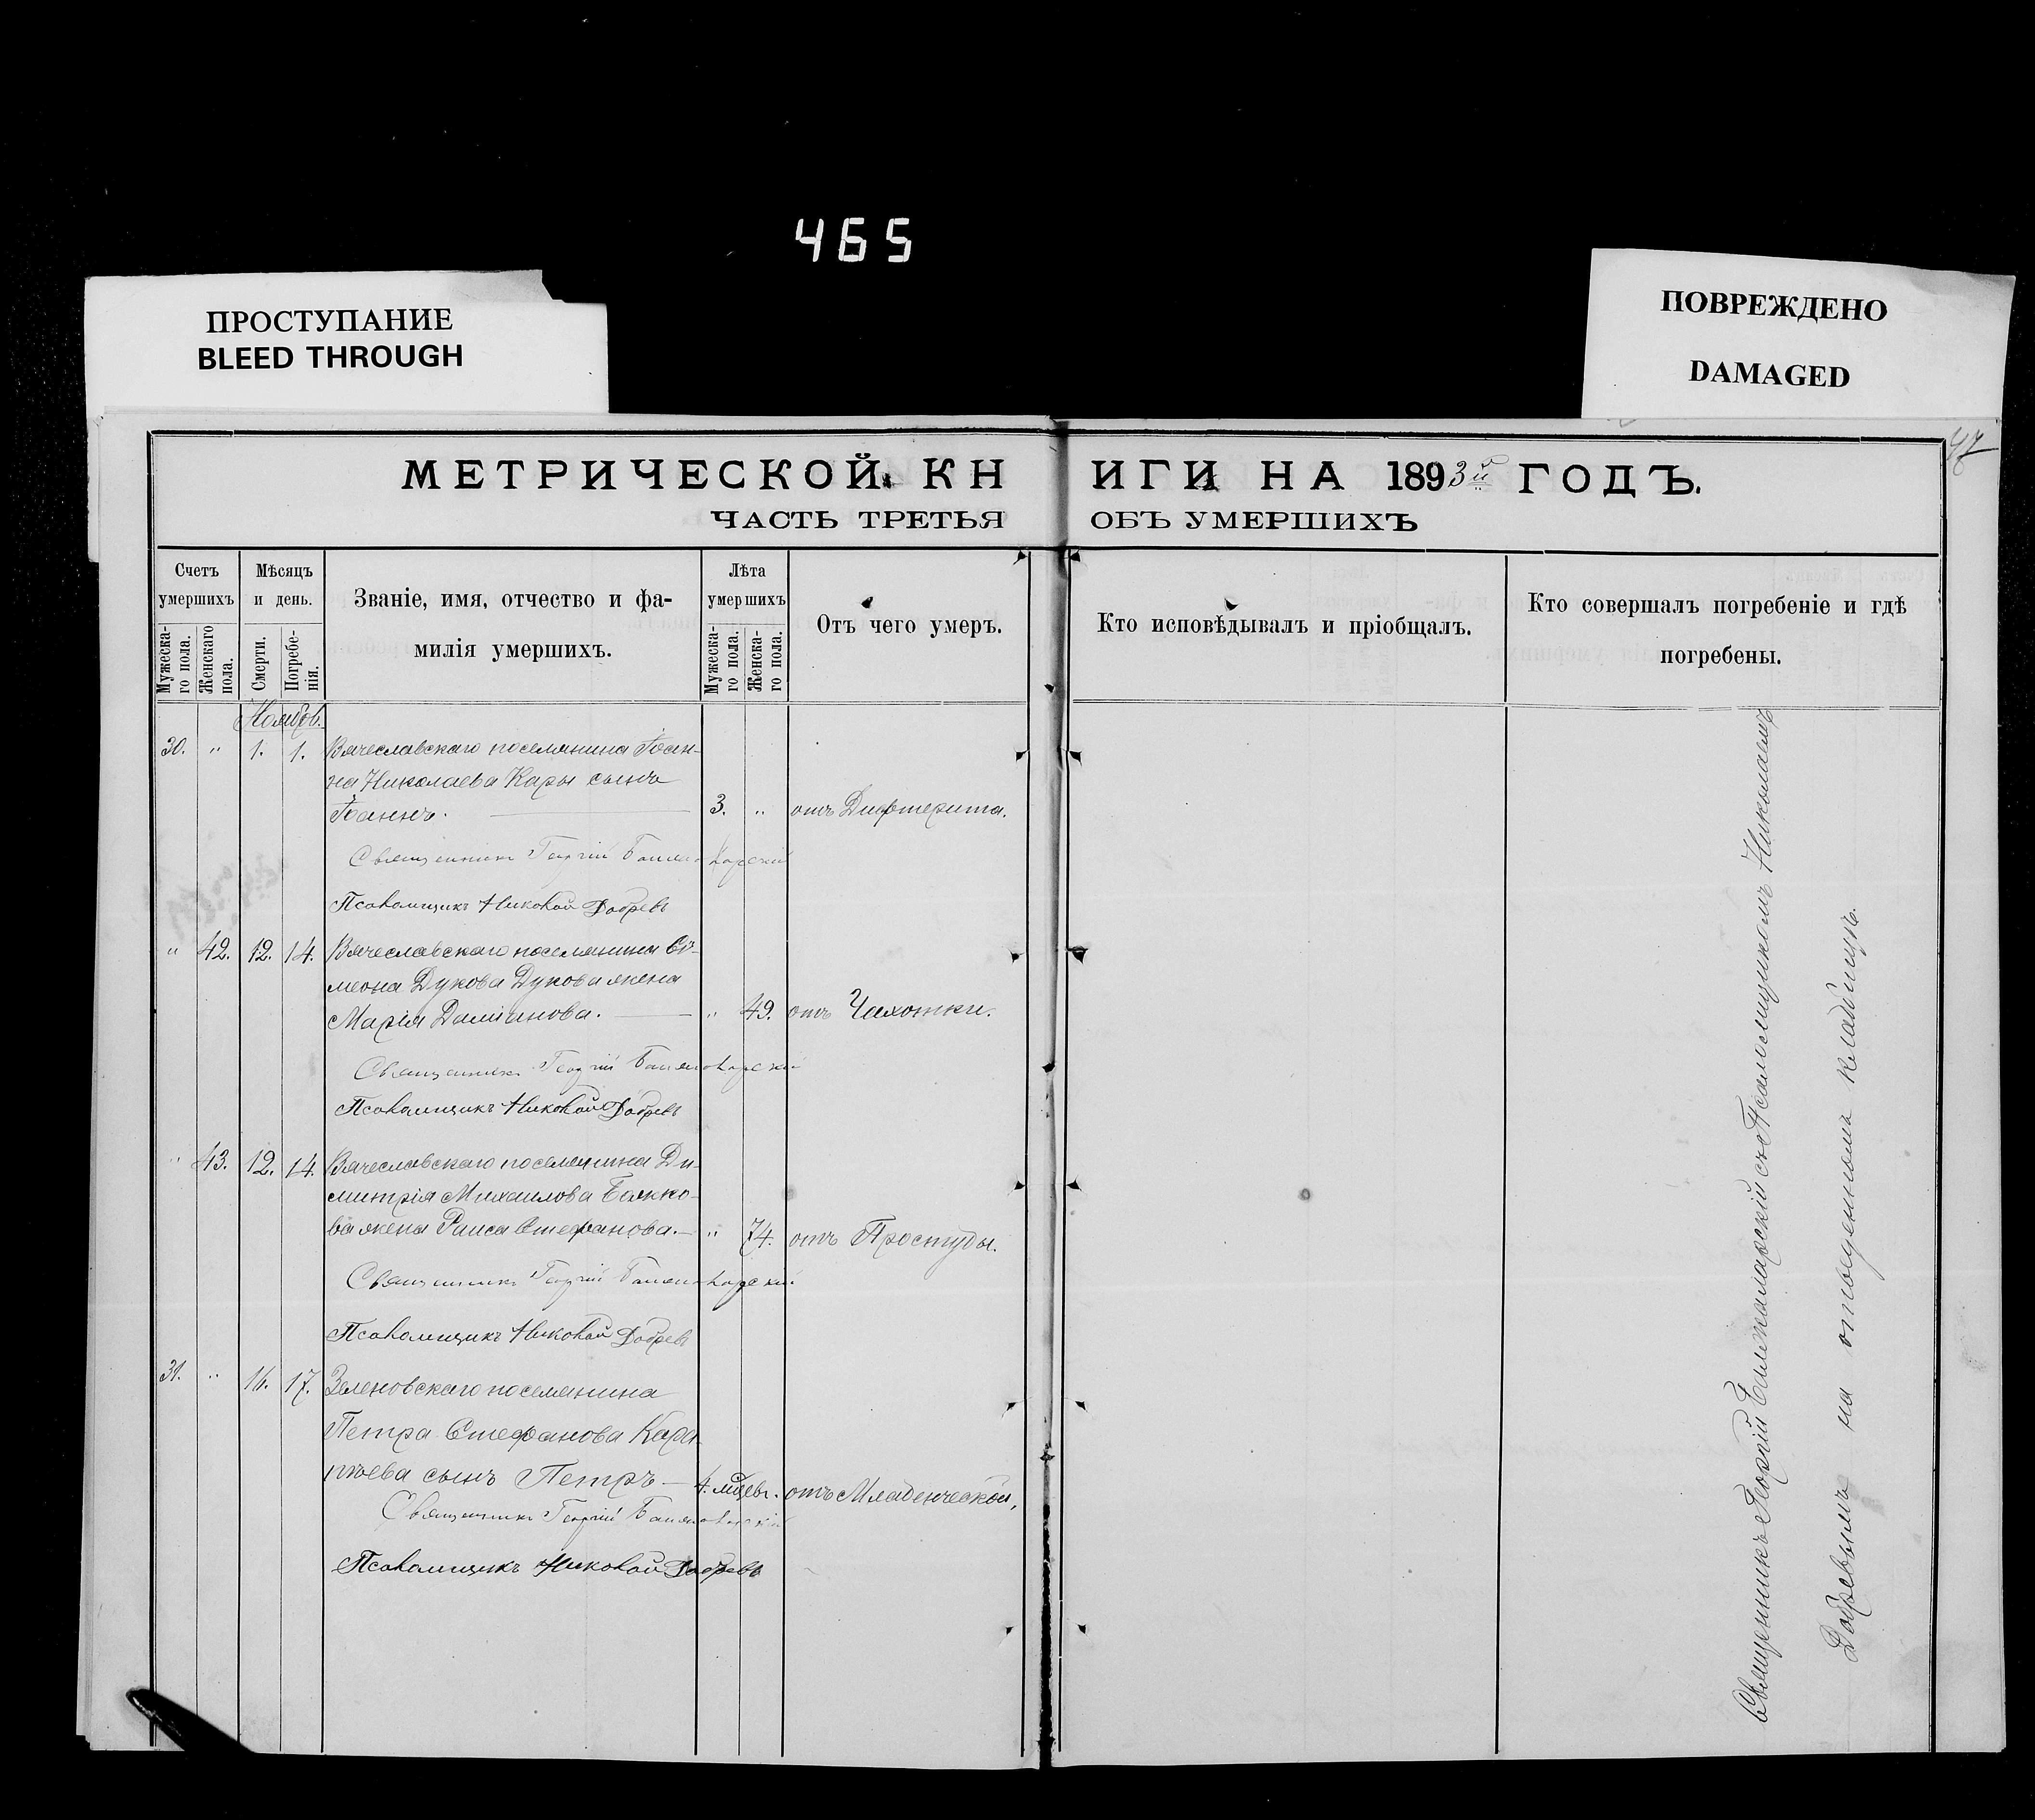 465
ПРОСТУПАНИЕ
BLEED THROUGH
ПОВРЕЖДЕНО
DAMAGED
47
МЕТРИЧЕСКОЙ КН ИГИ НА 1893й ГОДЪ.
ЧАСТЬ ТРЕТЬЯ ОБЪ УМЕРШИХЪ
Счетъ умершихъ
Мужеска-го пола.
Женскаго пола.
Мѣсяцъ и день.
Смерти.
Погребе-нія.
Званіе, имя, отчество и фа-
милія умершихъ.
Лѣта умершихъ
Мужеска-го пола.
Женска-го пола.
Отъ чего умеръ.
Кто исповѣдывалъ и пріобщалъ.
Кто совершалъ погребеніе и гдѣ
погребены.
Ноября.
30. " 1. 1. Вячеславскаго поселянина Іоан-
на Николаева Кары сынъ
Іоаннъ. 3. " отъ Дифтерита.
Священникъ Георгій
Псаломщикъ Николай Добревъ
" 42. 12. 14. Вячеславскаго поселянина Си-
меона Дукова Дукова жена
Марія Даміанова. " 49. отъ Чахотки.
Священникъ Георгій
Псаломщикъ Николай Добревъ
" 43. 12. 14. Вячеславскаго поселянина Ди-
митрія Михаилова
ва жена Раиса Стефанова. " 74. отъ Простуды.
Священникъ Георгій
Псаломщикъ Николай Добревъ
31. " 16. 17. Зеленовскаго поселянина
Петра Стефанова
сынъ Петръ 4. мцевъ. отъ Младенческой.
Священникъ Георгій
Псаломщикъ Николай Добревъ
Священникъ Георгій съ Псаломщикомъ Николаемъ
Добревымъ на отведенномъ кладбищѣ.